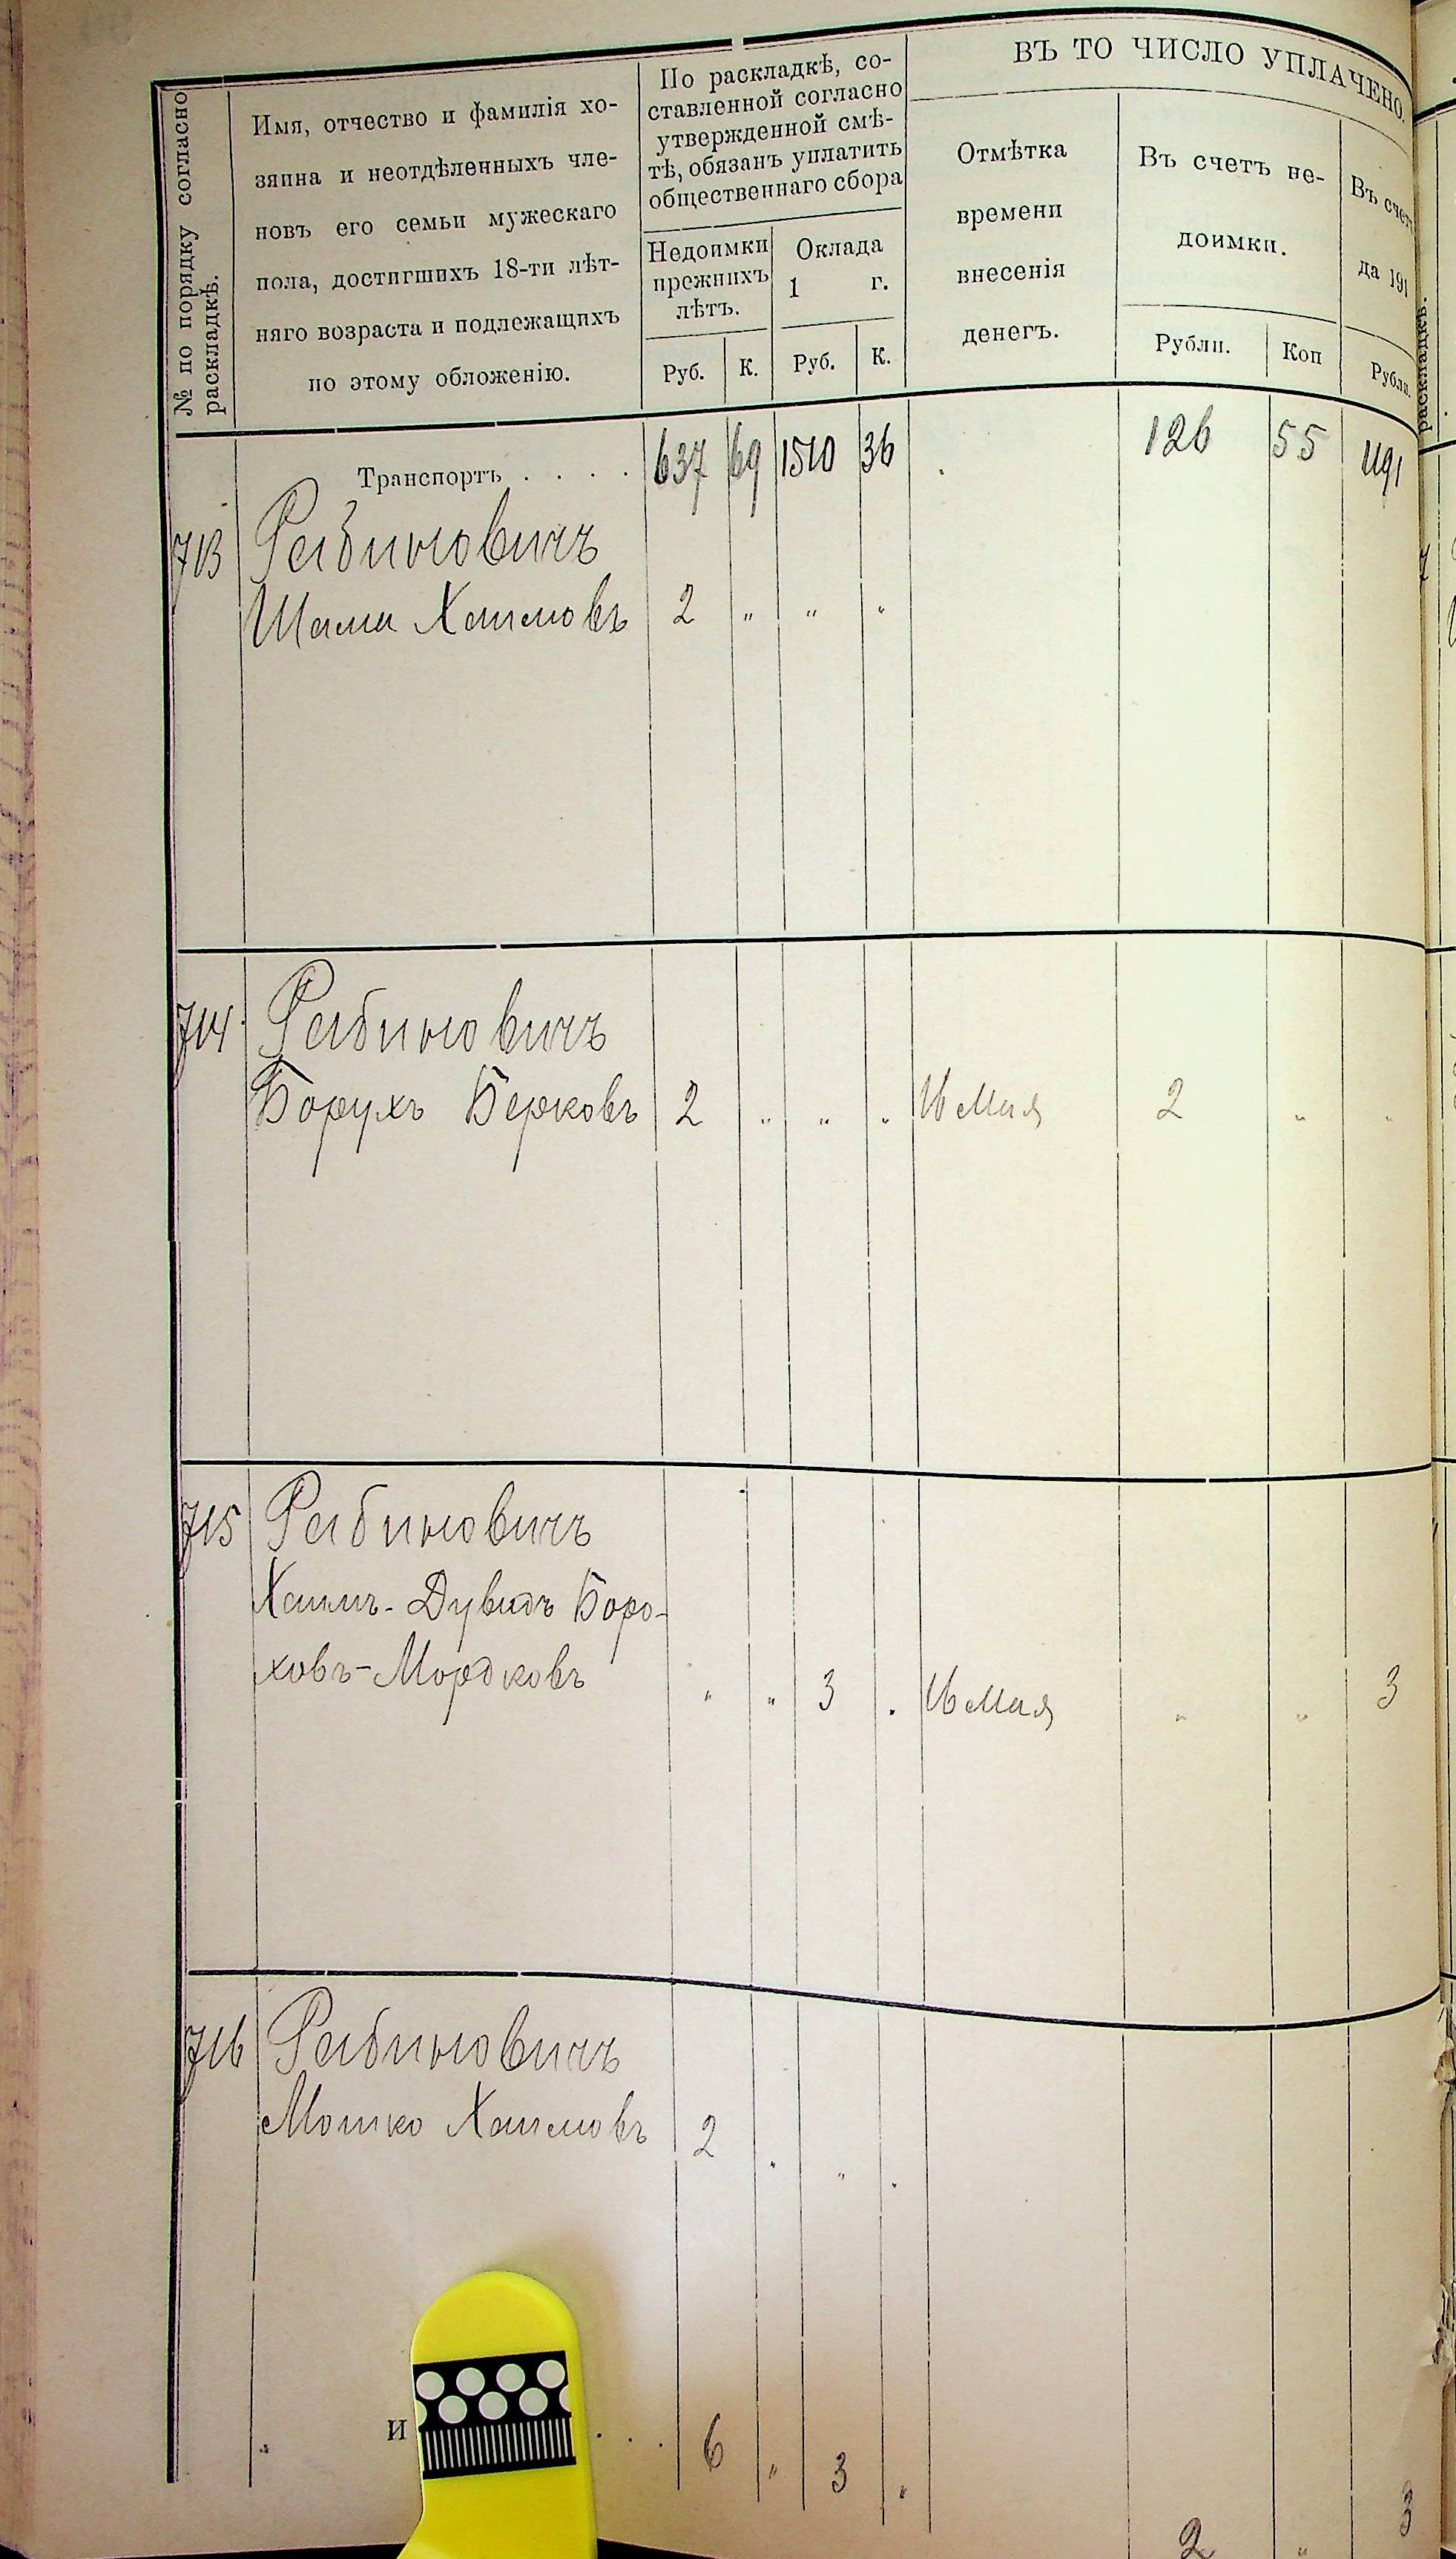 № по порядку согласно
раскладкѣ.
Имя, отчество и фамилія хо-
зяина и неотдѣленныхъ чле-
новъ его семьи мужескаго
пола, достигшихъ 18-ти лѣт-
няго возраста и подлежащихъ
по этому обложенію.
По раскладкѣ, со-
ставленной согласно
утвержденной смѣ-
тѣ, обязанъ уплатить
общественнаго сбора
Недоимки
прежнихъ
лѣтъ.
Руб. К.
Оклада
1 г.
Руб. К.
ВЪ ТО ЧИСЛО УПЛАЧЕНО.
Отмѣтка
времени
внесенія
денегъ.
Въ счетъ не-
доимки.
Рубли. Коп
Въ счет
да 191
Рубли.
раскладкѣ.
Транспортъ . . . . 637 69 1510 36 126 55 1191
713 Рабиновичъ
Шама Хаимовъ 2 „ „ „
714 Рабиновичъ
Борухъ Берковъ 2 „ „ „ 16 мая 2 „ „
715 Рабиновичъ
Хаимъ-Дувидъ Боро-
ховъ-Мордковъ „ „ 3 „ 16 мая „ „ 3
716 Рабиновичъ
Мошко Хаимовъ 2 „ „ „
И . . . 6 „ 3 „
2 „ 3